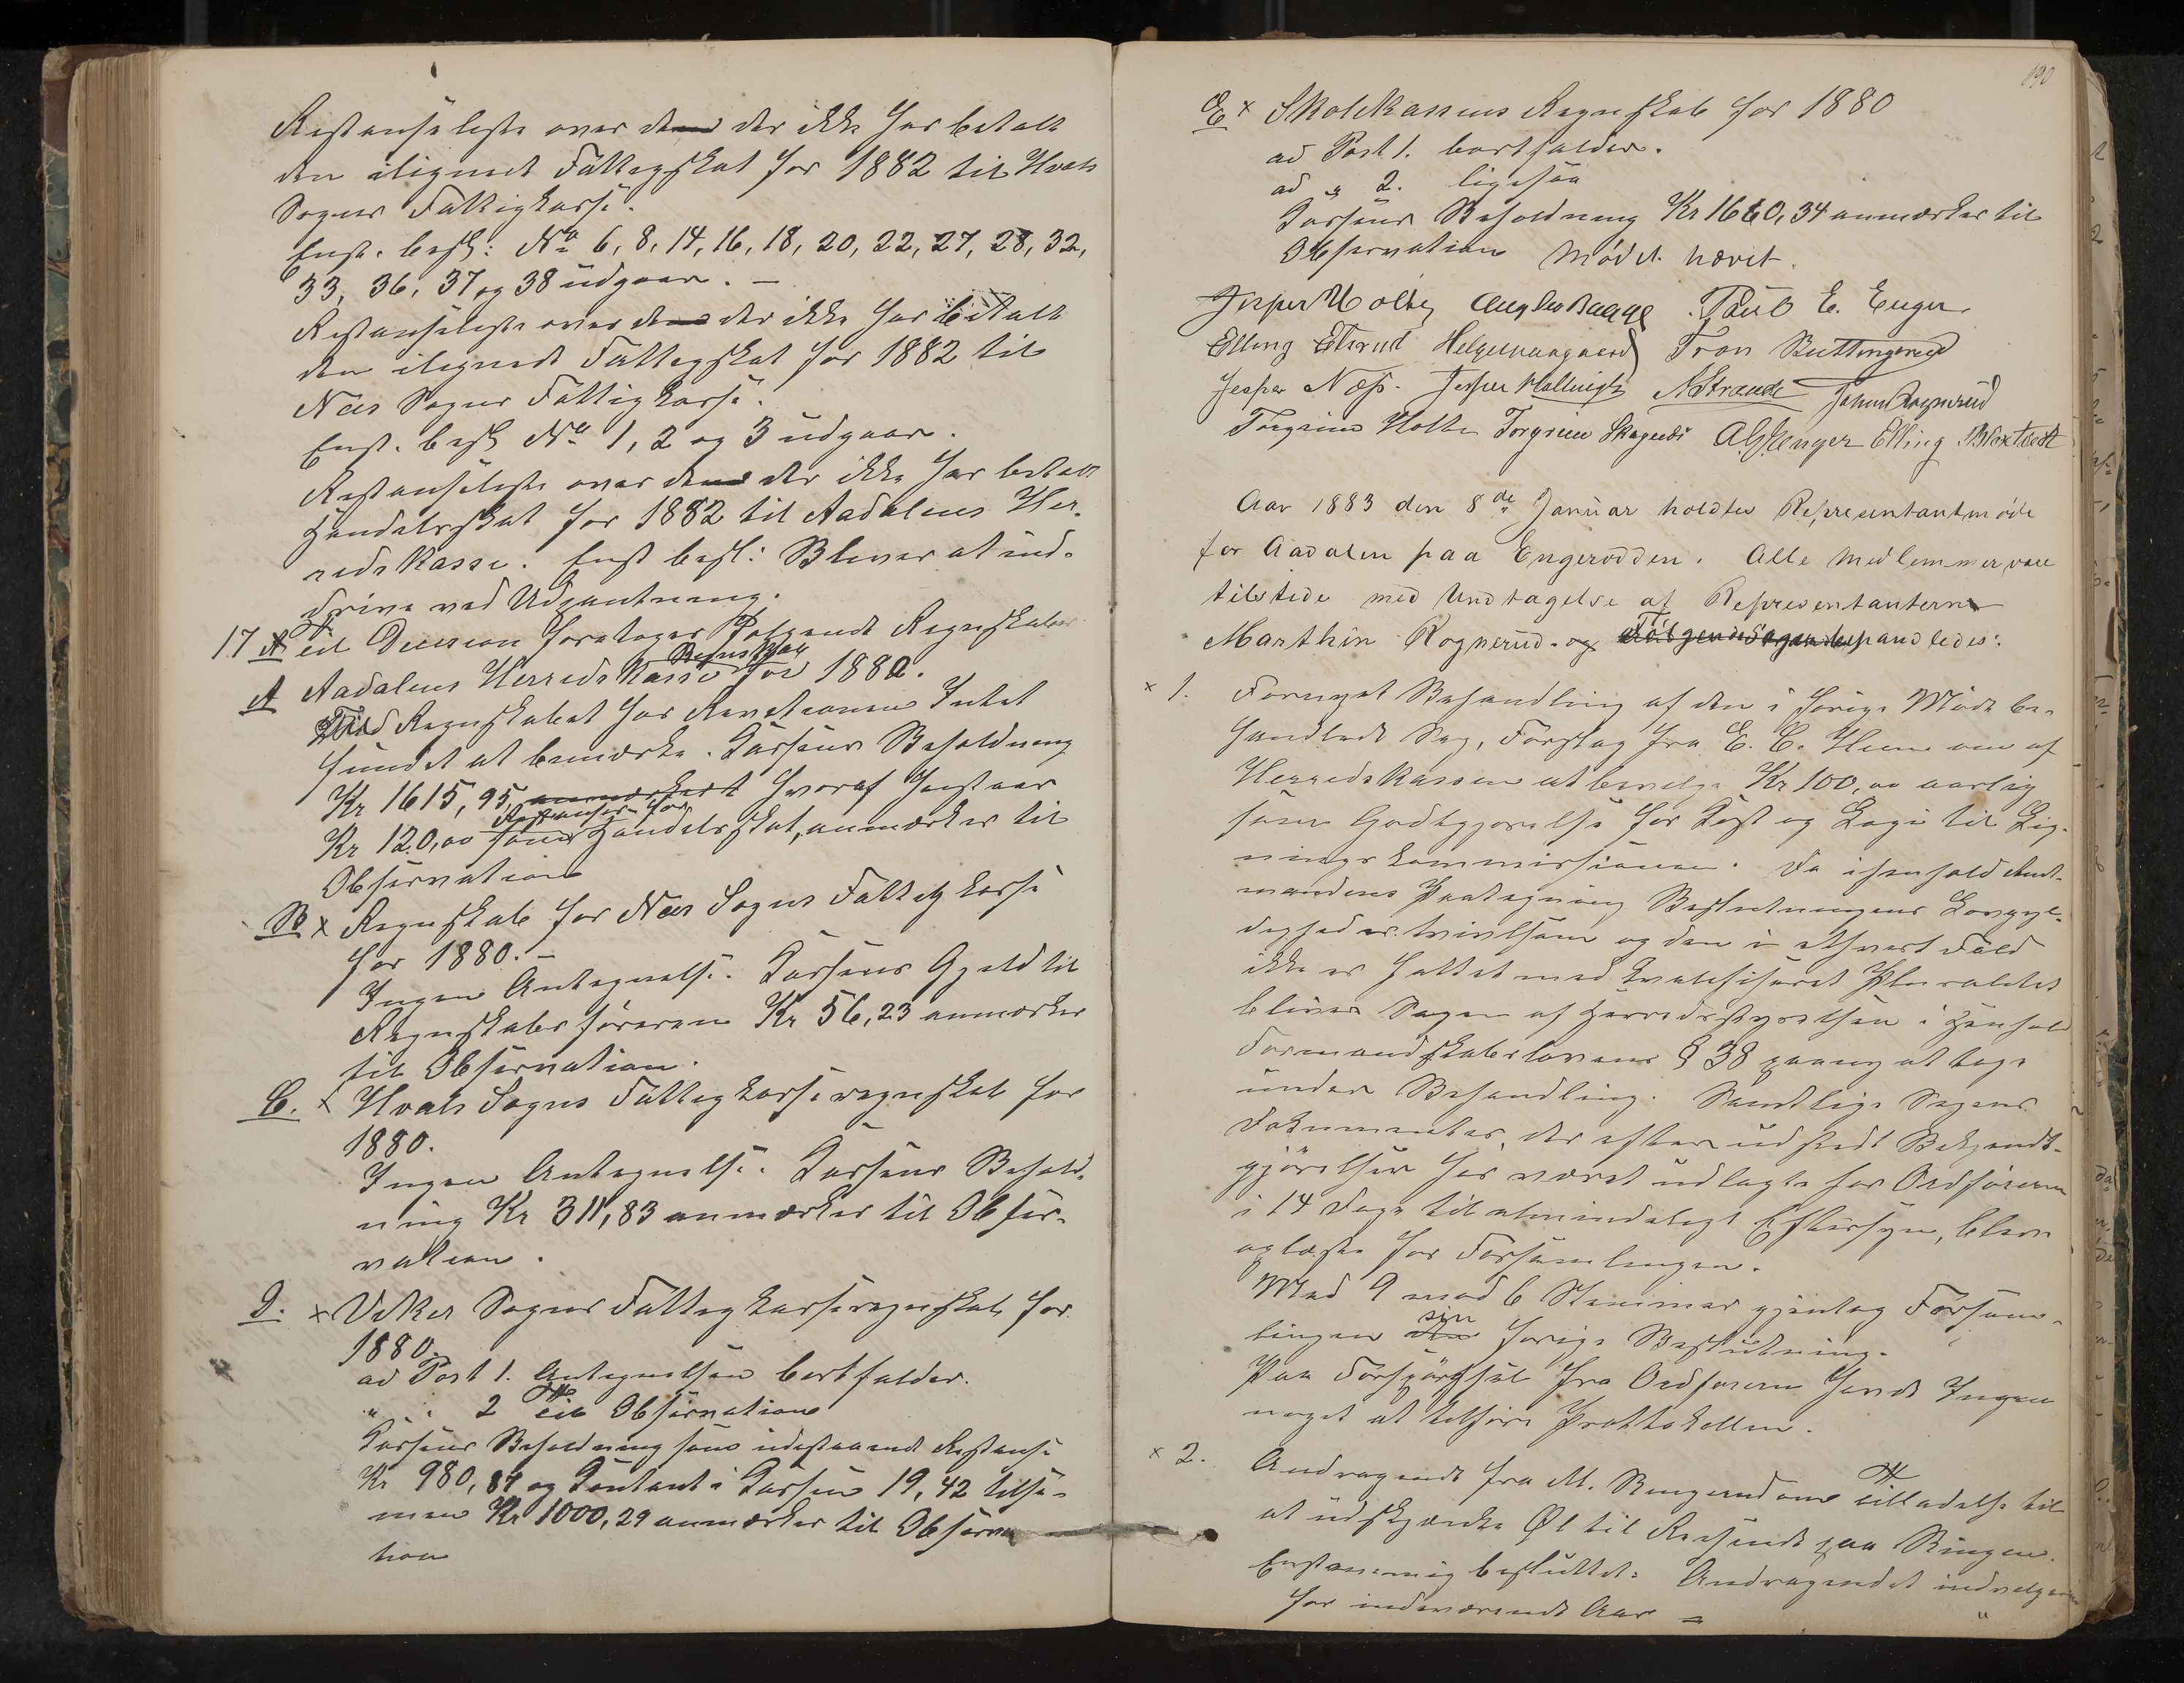 Restanseliste over dem der ikke har betalt
den ilignede Fattigskat for 1882 til Hvals
Sogns Fattigkasse.
Enst. besl: No 6, 8, 14, 16, 18, 20, 22, 27, 28, 32,
33, 36, 37 og 38 udgaar. —
Restanseliste over dem der ikke har betalt
den ilignede Fattigskat for 1882 til
Næs Sogns Fattigkasse.
Enst. besl No 1, 2 og 3 udgaar.
Restanseliste over dem der ikke har betalt
Handelsskat for 1882 til Aadalens Her-
redskasse. Enst besl: Bliver at ind-
drive ved Udpantning.
17 Til Decision foretoges følgende Regnskaber
A Aadalens Herredskasse Regnskab for 1880.
Ved Regnskabet har Revisionen Intet
fundet at bemærke. Kassens Beholdning
Kr 1615,95, anmærkedt hvoraf henstaar
Kr 120,00 som Restanser for Handelsskat, anmærkes til
Observation
B x Regnskab for Næs Sogns Fattigkasse
for 1880. —
Ingen Antegnelse. Kassens Gjæld til
Regnskabsføreren Kr 56,23 anmærkes
til Observation.
C. x Hvals Sogns Fattigkasseregnskab for
1880.
Ingen Antegnelse. Kassens Behold-
ning Kr 311,83 anmærkes til Obser-
vation.
D. x Viker Sogns Fattigkasseregnskab for
1880.
ad Post 1. Antegnelsen bortfalder.
" " 2 Til Observation
Kassens Beholdning som udestaaende Restanse
Kr 980,87 og Kontant i Kassen 19,42 tilsa-
men Kr 1000,29 anmærkes til Observa
tion
190
E x Skolekassens Regnskab for 1880
ad Post 1. bortfalder.
ad " 2. ligesaa
Kassens Beholdning Kr 1660,34 anmærkes til
Observation Mødet hævet.
Jesper Holte Paul E. Enger
Elling Elsrud Helge Tron Buttingsrud
Jesper Næs. Jesper NStrande Johan Rognerud
Torgrim Holte Torgrim Elling Bløxtvedt
Aar 1883 den 8de Januar holdtes Representantmøde
for Aadalen paa Engerodden. Alle Medlemmer vare
tilstede med Undtagelse af Representanterne
Marthin Rognerud og Følgende Sager behandledes:
x 1. Fornyet Behandling af den i forige Møde be-
handlede Sag, Forslag fra E. C. Hum om af
Herredskassen at bevilge Kr 100,00 aarlig
som Godtgjørelse for Kost og Logi til Lig-
ningskommissionen. Da ihenhold Amt-
mandens Paategning Beslutningens Lovgyl-
dighed er tvivlsom og den i ethvert Fald
ikke er fattet med kvalifiseret Pluralitet
bliver Sagen af Herredsstyrelsen i Henhold
Formandskabslovens § 38 paany at tage
under Behandling. Samtlige Sagens
Dokumenter, der efter udstedt Bekjendt-
gjørelse har været udlagte hos Ordføreren
i 14 Dage til almindeligt Eftersyn, bleve
oplæste for Forsamlingen.
Med 9 mod 6 Stemmer gjentog Forsam-
lingen den sin forige Beslutning.
Paa Forspørgsel fra Ordføreren havde Ingen
noget at tilføre Prottokollen.
x 2. Andragende fra M. Ringerud om Tilladelse til
at udskjænke Øl til Reisende paa Ringen.
Enstemmig besluttet: Andragendet indvilges
for indeværende Aar —